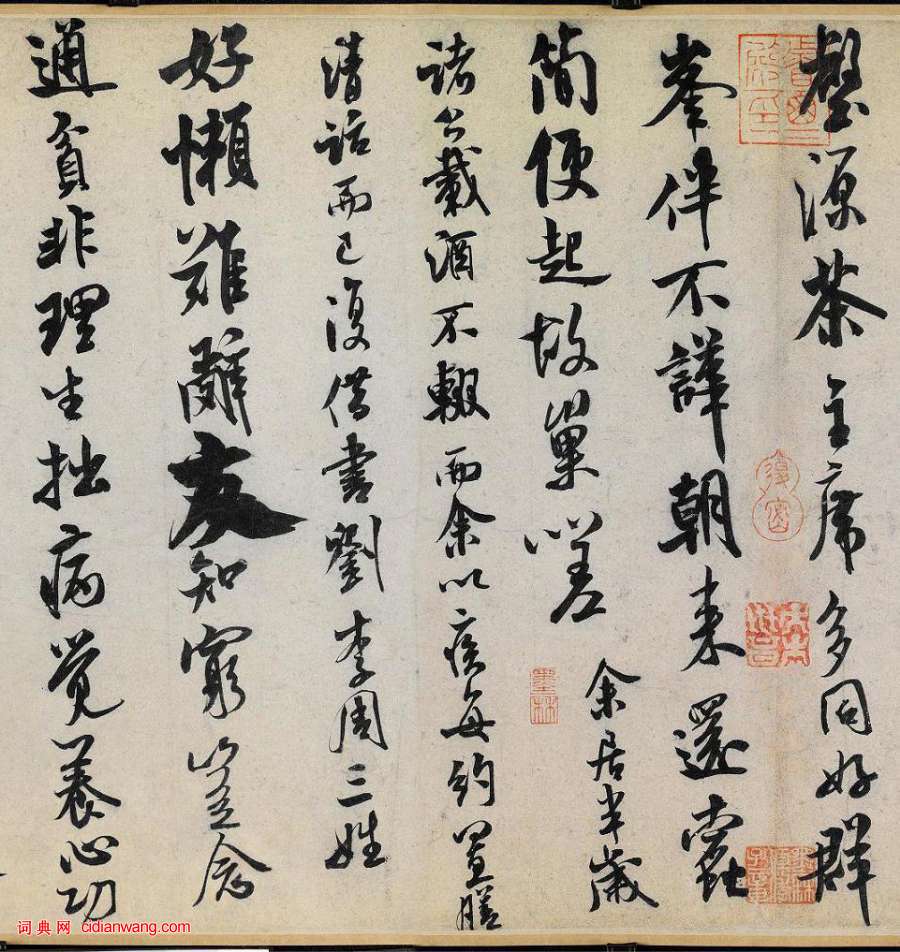 壑源茶主席多同好群
峯伴不譁朝来還蠹
簡便起故巢嗟
余居半歲
諸公載酒不輟而余以疾每約置膳
清話而已復借書劉李周三姓
好懶難辭友知窮豈念
通貧非理生拙病覺養心功
墨林
词典网 cidianwang.com